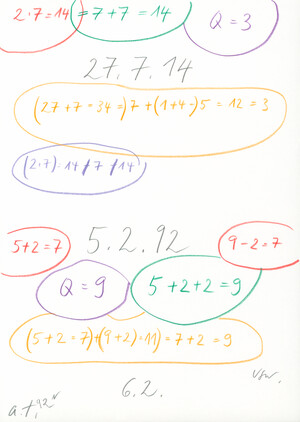 2·7=14 = 7+7=14 Q=3
27.7.14
(27+7=34=)7+(1+4=)5=12=3
(2·7):14/7/14)
5+2=7 5.2.92 9-2=7
Q=9 5+2+2=9
(5+2=7)+(9+2)=11)=7+2=9
6.2. usw.
a.t. 92